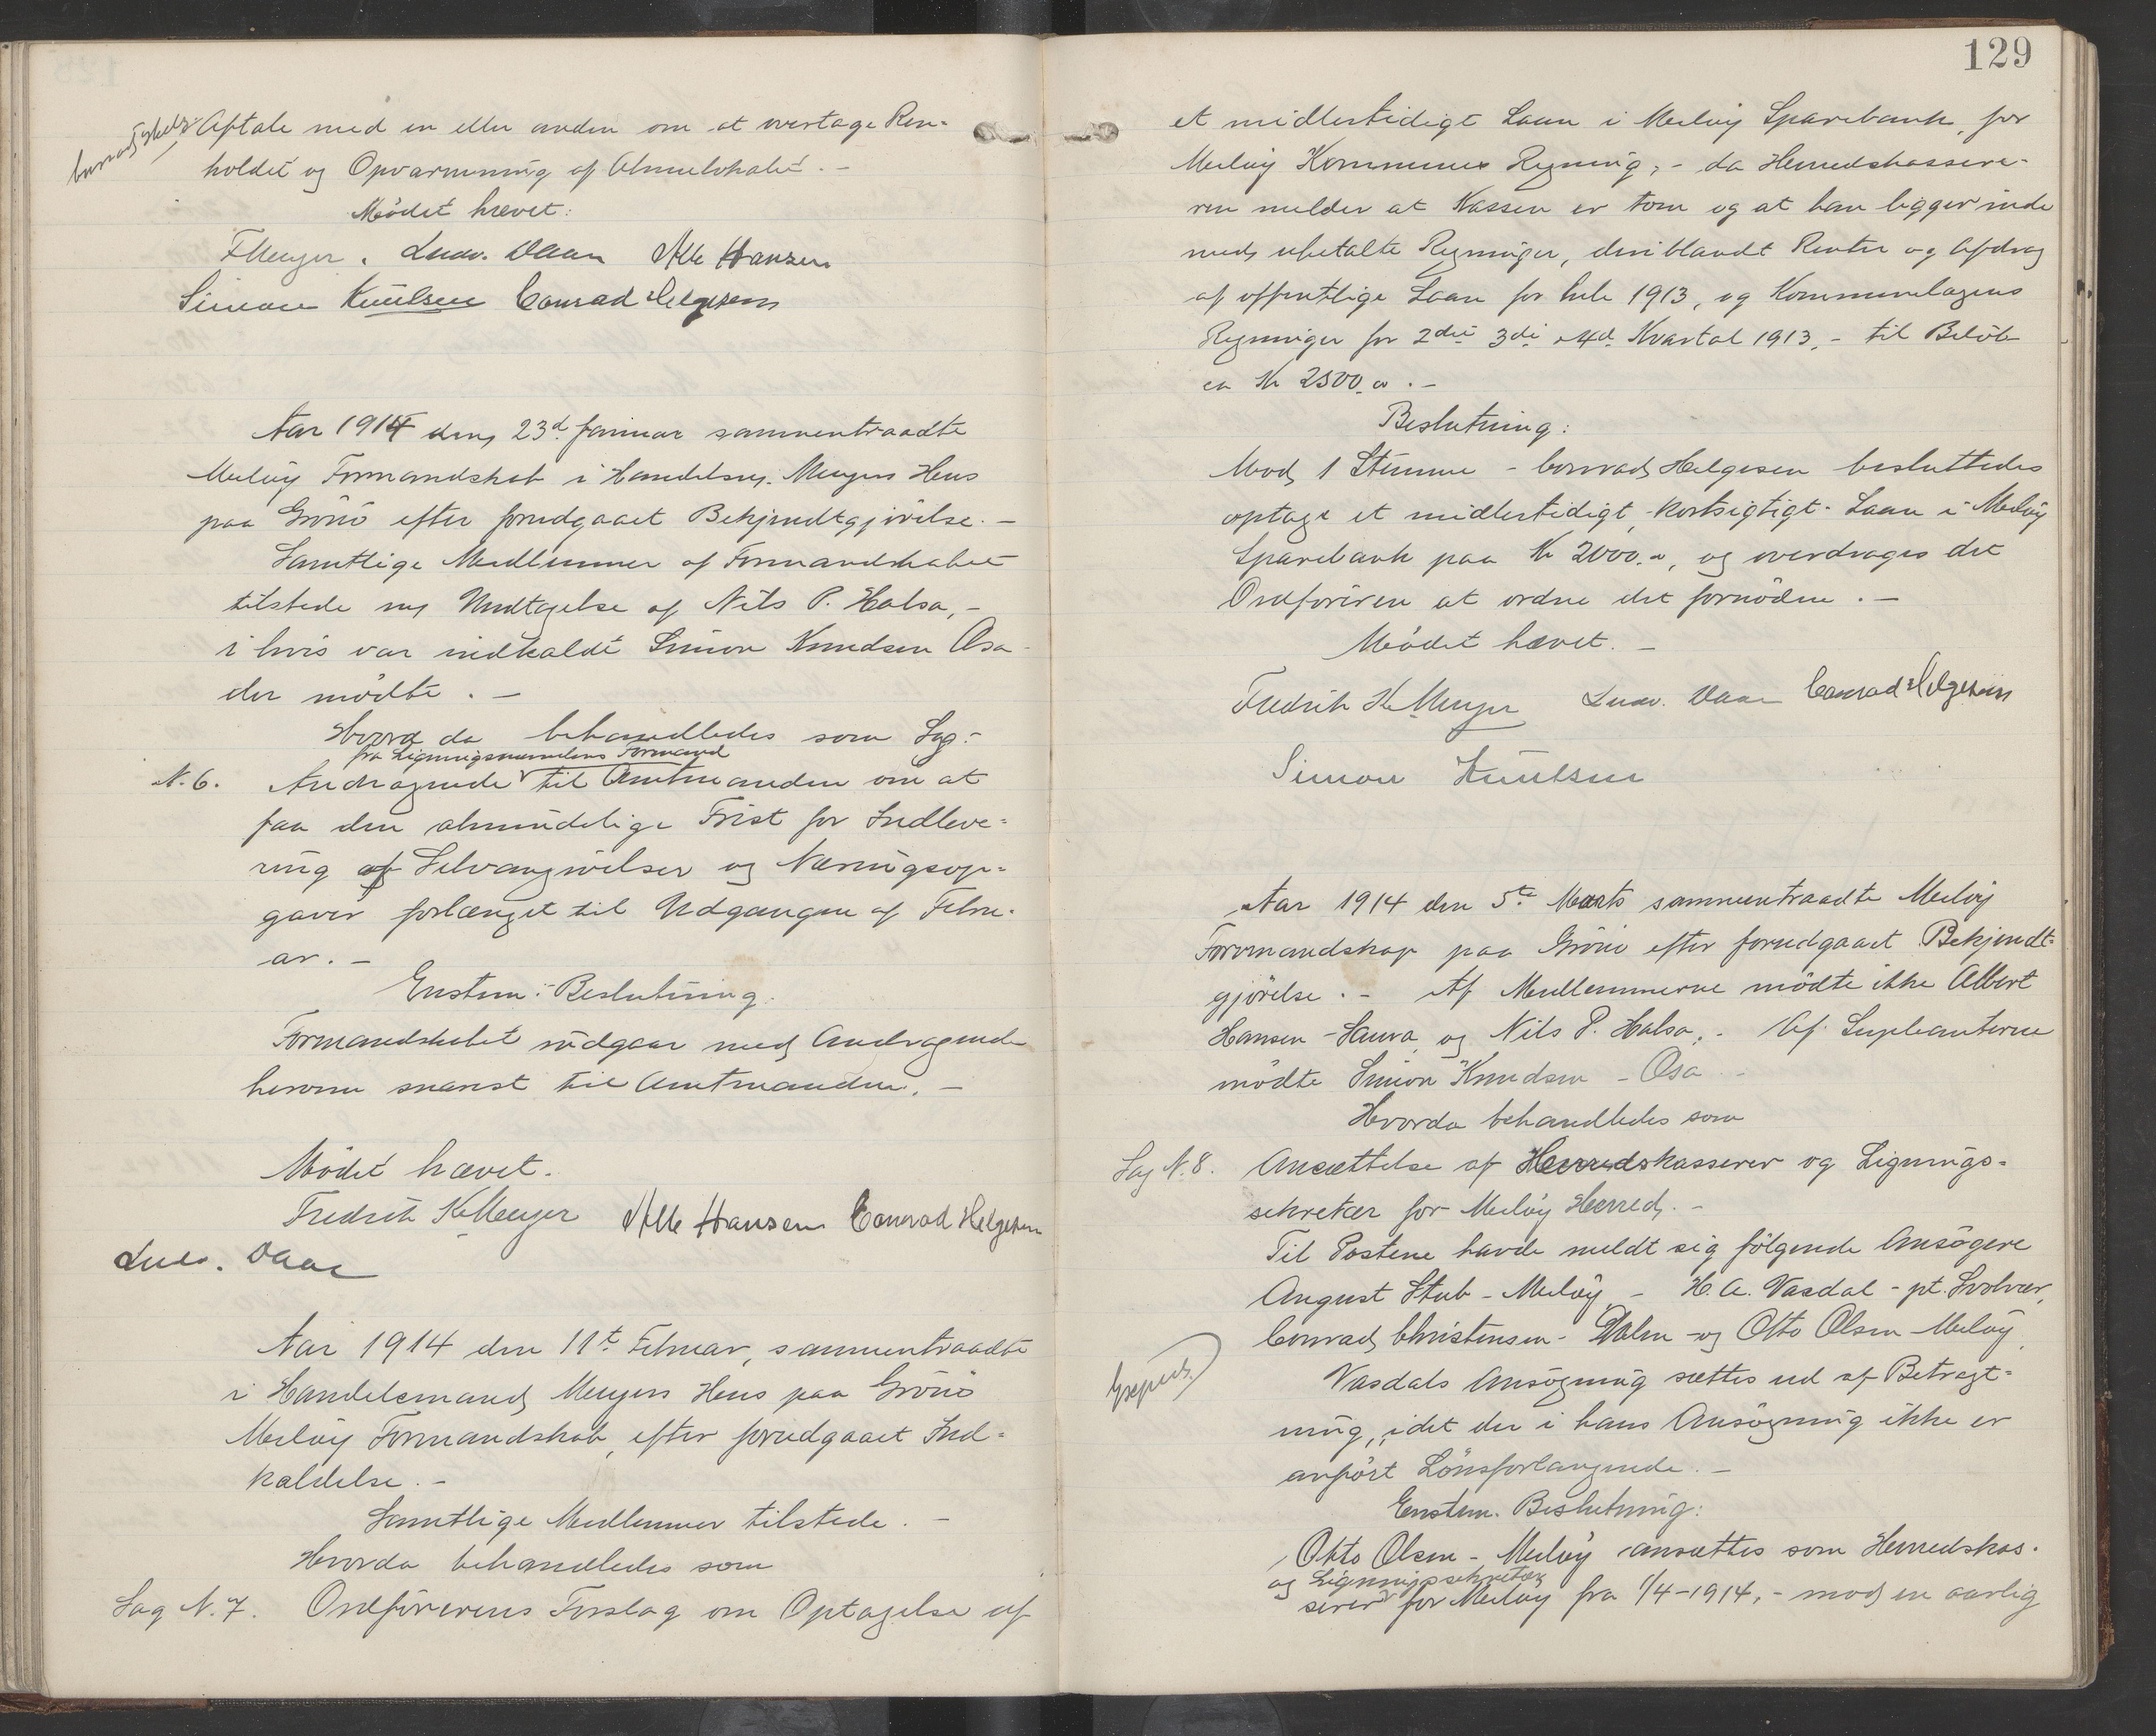 Aftale med en eller anden om at overtage Ren-
holdet og Opvarmning af Almulokalet. -
Mødet hævet:
F Meyer. Ludv. Daae Alb Hansen
Simon Knutsen Conrad Helgesen
Aar 1914 den 23d Januar sammentraadte
Meløy Formandskab i Handelsm. Meyers Hus
paa Grönö efter forudgaaet Bekjendtgjörelse. -
Samtlige Medlemmer af Formandskabet
tilstede m/ Undtagelse af Nils P. Halsa, -
i hvis var indkaldt Simon Knudsen Osa
der mödte. -
Hvorda behandledes som Sag:
fra Ligningsnævndens Formand
N. 6. Andragende til Amtmanden om at
faa den almindelige Frist for Indleve-
ring af Selvangivelser og Næringsop-
gaver forlænget til Udgangen af Febru-
ar. -
Enstem: Beslutning:
Formandskabet indgaar med Andragende
herom snarest til Amtmanden. -
Mødet hævet.
Fredrik K Meyer Alb Hansen Conrad Helgesen
Ludv. Daae
Aar 1914 den 11t Februar, sammentraadte
i Handelsmand Meyers Hus paa Grönö
Meløy Formandskab, efter forudgaaet Ind-
kaldelse. -
Samtlige Medlemmer tilstede. -
Hvorda behandledes som
Sag N. 7. Ordførerens Forslag om Optagelse af
129
et midlertidigt Laan i Meløy Sparebank, for
Meløy Kommunes Regning, - da Herredskassere-
ren melder at Kassen er tom og at han ligger inde
med ubetalte Regninger, deriblandt Renter og Afdrag
af offentlige Laan for hele 1913, og Kommunelægens
Regninger for 2det 3di 4d. Kvartal 1913, - til Beløb
ca Kr 2500. -
Beslutning:
Mod 1 Stemme - Conrad Helgesen besluttedes
optage et midlertidigt, kortsigtigt Laan i Meløy
Sparebank paa Kr 2000.-, og overdrages det
Ordføreren at ordne det fornödne. -
Mødet hævet. -
Fredrik K Meyer Ludv. Daae Conrad Helgesen
Simon Knutsen
Aar 1914 den 5te Marts sammentraadte Meløy
Formandskap paa Grönö efter forudgaaet Bekjendt-
gjörelse. - Af Medlemmerne mödte ikke Albert
Hansen og Nils P. Halsa. - Af Supleanterne
mödte Simon Knudsen - Osa -
Hvorda behandledes som
Sag N. 8. Ansættelse af Herredskasserer og Lignings-
sekretær for Meløy Herred. -
Til Postene havde meldt sig fölgende Ansögere
August Stub - Meløy - H. A. Vasdal - pt. Svolvær,
Conrad Christensen - Dalen - og Otto Olsen - Meløy,
Vasdals Ansögning sættes ud af Betragt-
ning, idet der i hans Ansögning ikke er
anfört Lönsforlangende. -
Enstem. Beslutning:
Otto Olsen - Meløy ansættes som Herredskas-
og Ligningssekretær
serer for Meløy fra 1/4-1914, - mod en aarlig